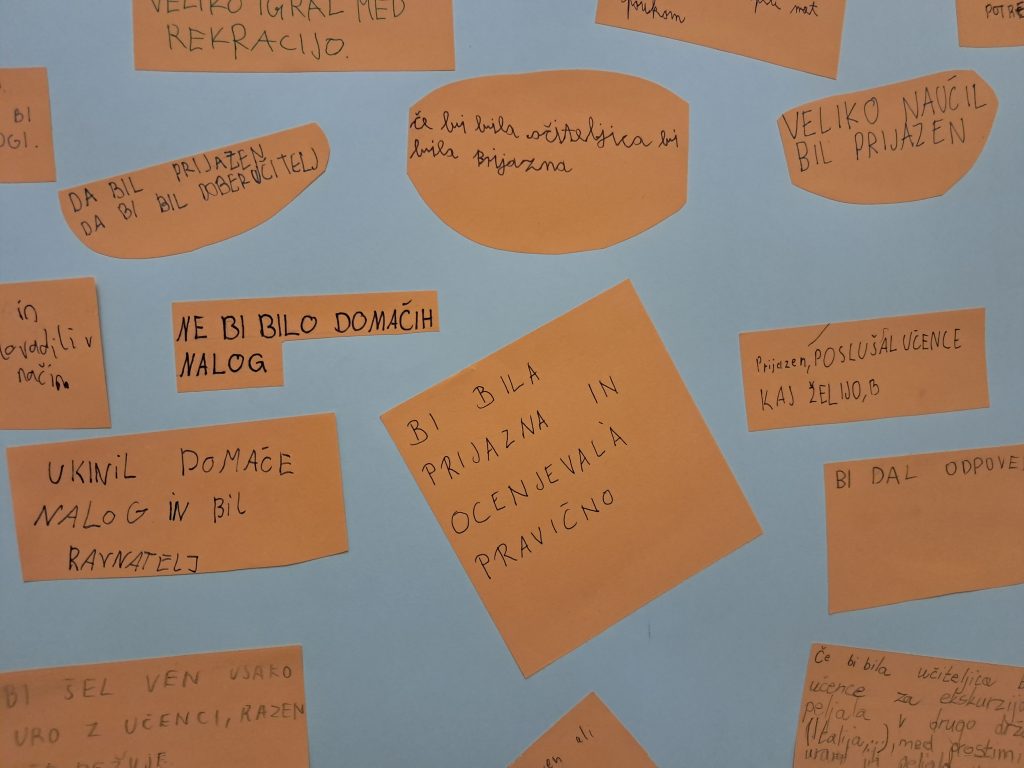 VELIKO IGRAL MED
REKRACIJO.
poukom
mat
BI
DA BIL PRIJAZEN
DA BI BIL DOBER UČITELJ
če bi bila učiteljica bi
bila Prijazna
VELIKO NAUČIL
BIL PRIJAZEN
in
v
način
NE BI BILO DOMAČIH
NALOG
BI BILA
PRIJAZNA IN
OCENJEVALA
PRAVIČNO
Prijazen, POSLUŠAL UČENCE
KAJ ŽELIJO, B
UKINIL DOMAČE
NALOG IN BIL
RAVNATELJ
BI DAL
BI ŠEL VEN VSAKO
URO Z UČENCI, RAZEN
DEŽUJE
ali
Če bi bila učiteljica
učence za ekskurzijo
peljala v drugo
(Italija,..), med prostimi